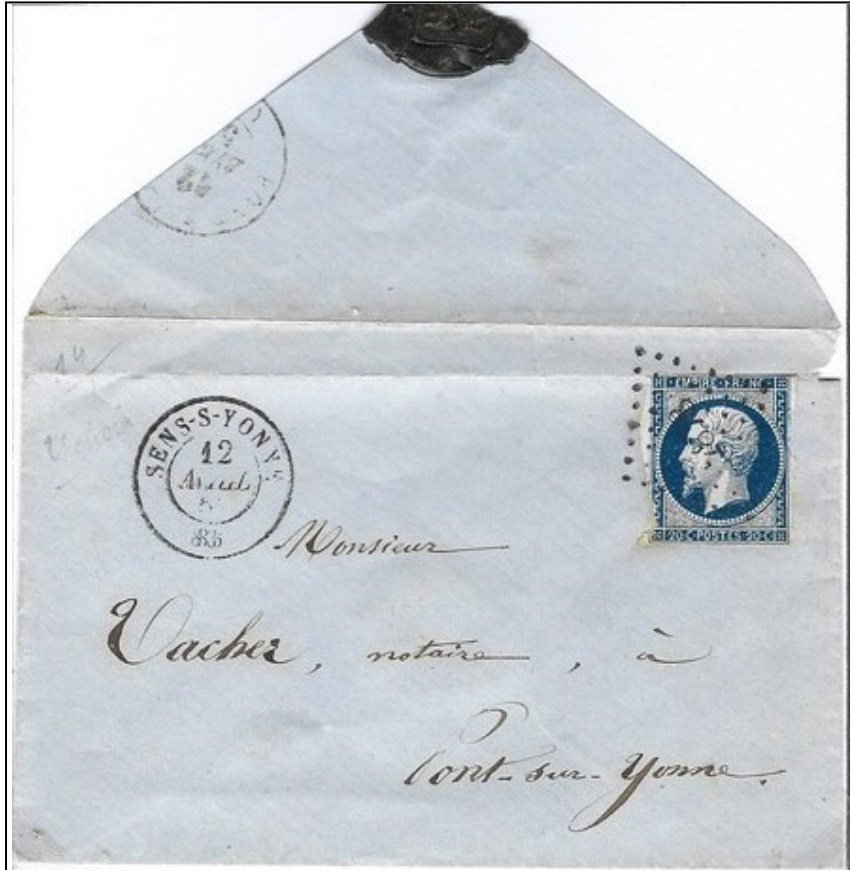 SENS-S-YONNE
12
Avril
EMPIRE FRANC
20·C·POSTES·20·C
Monsieur
Vacher, notaire, à
Pont-sur-Yonne.